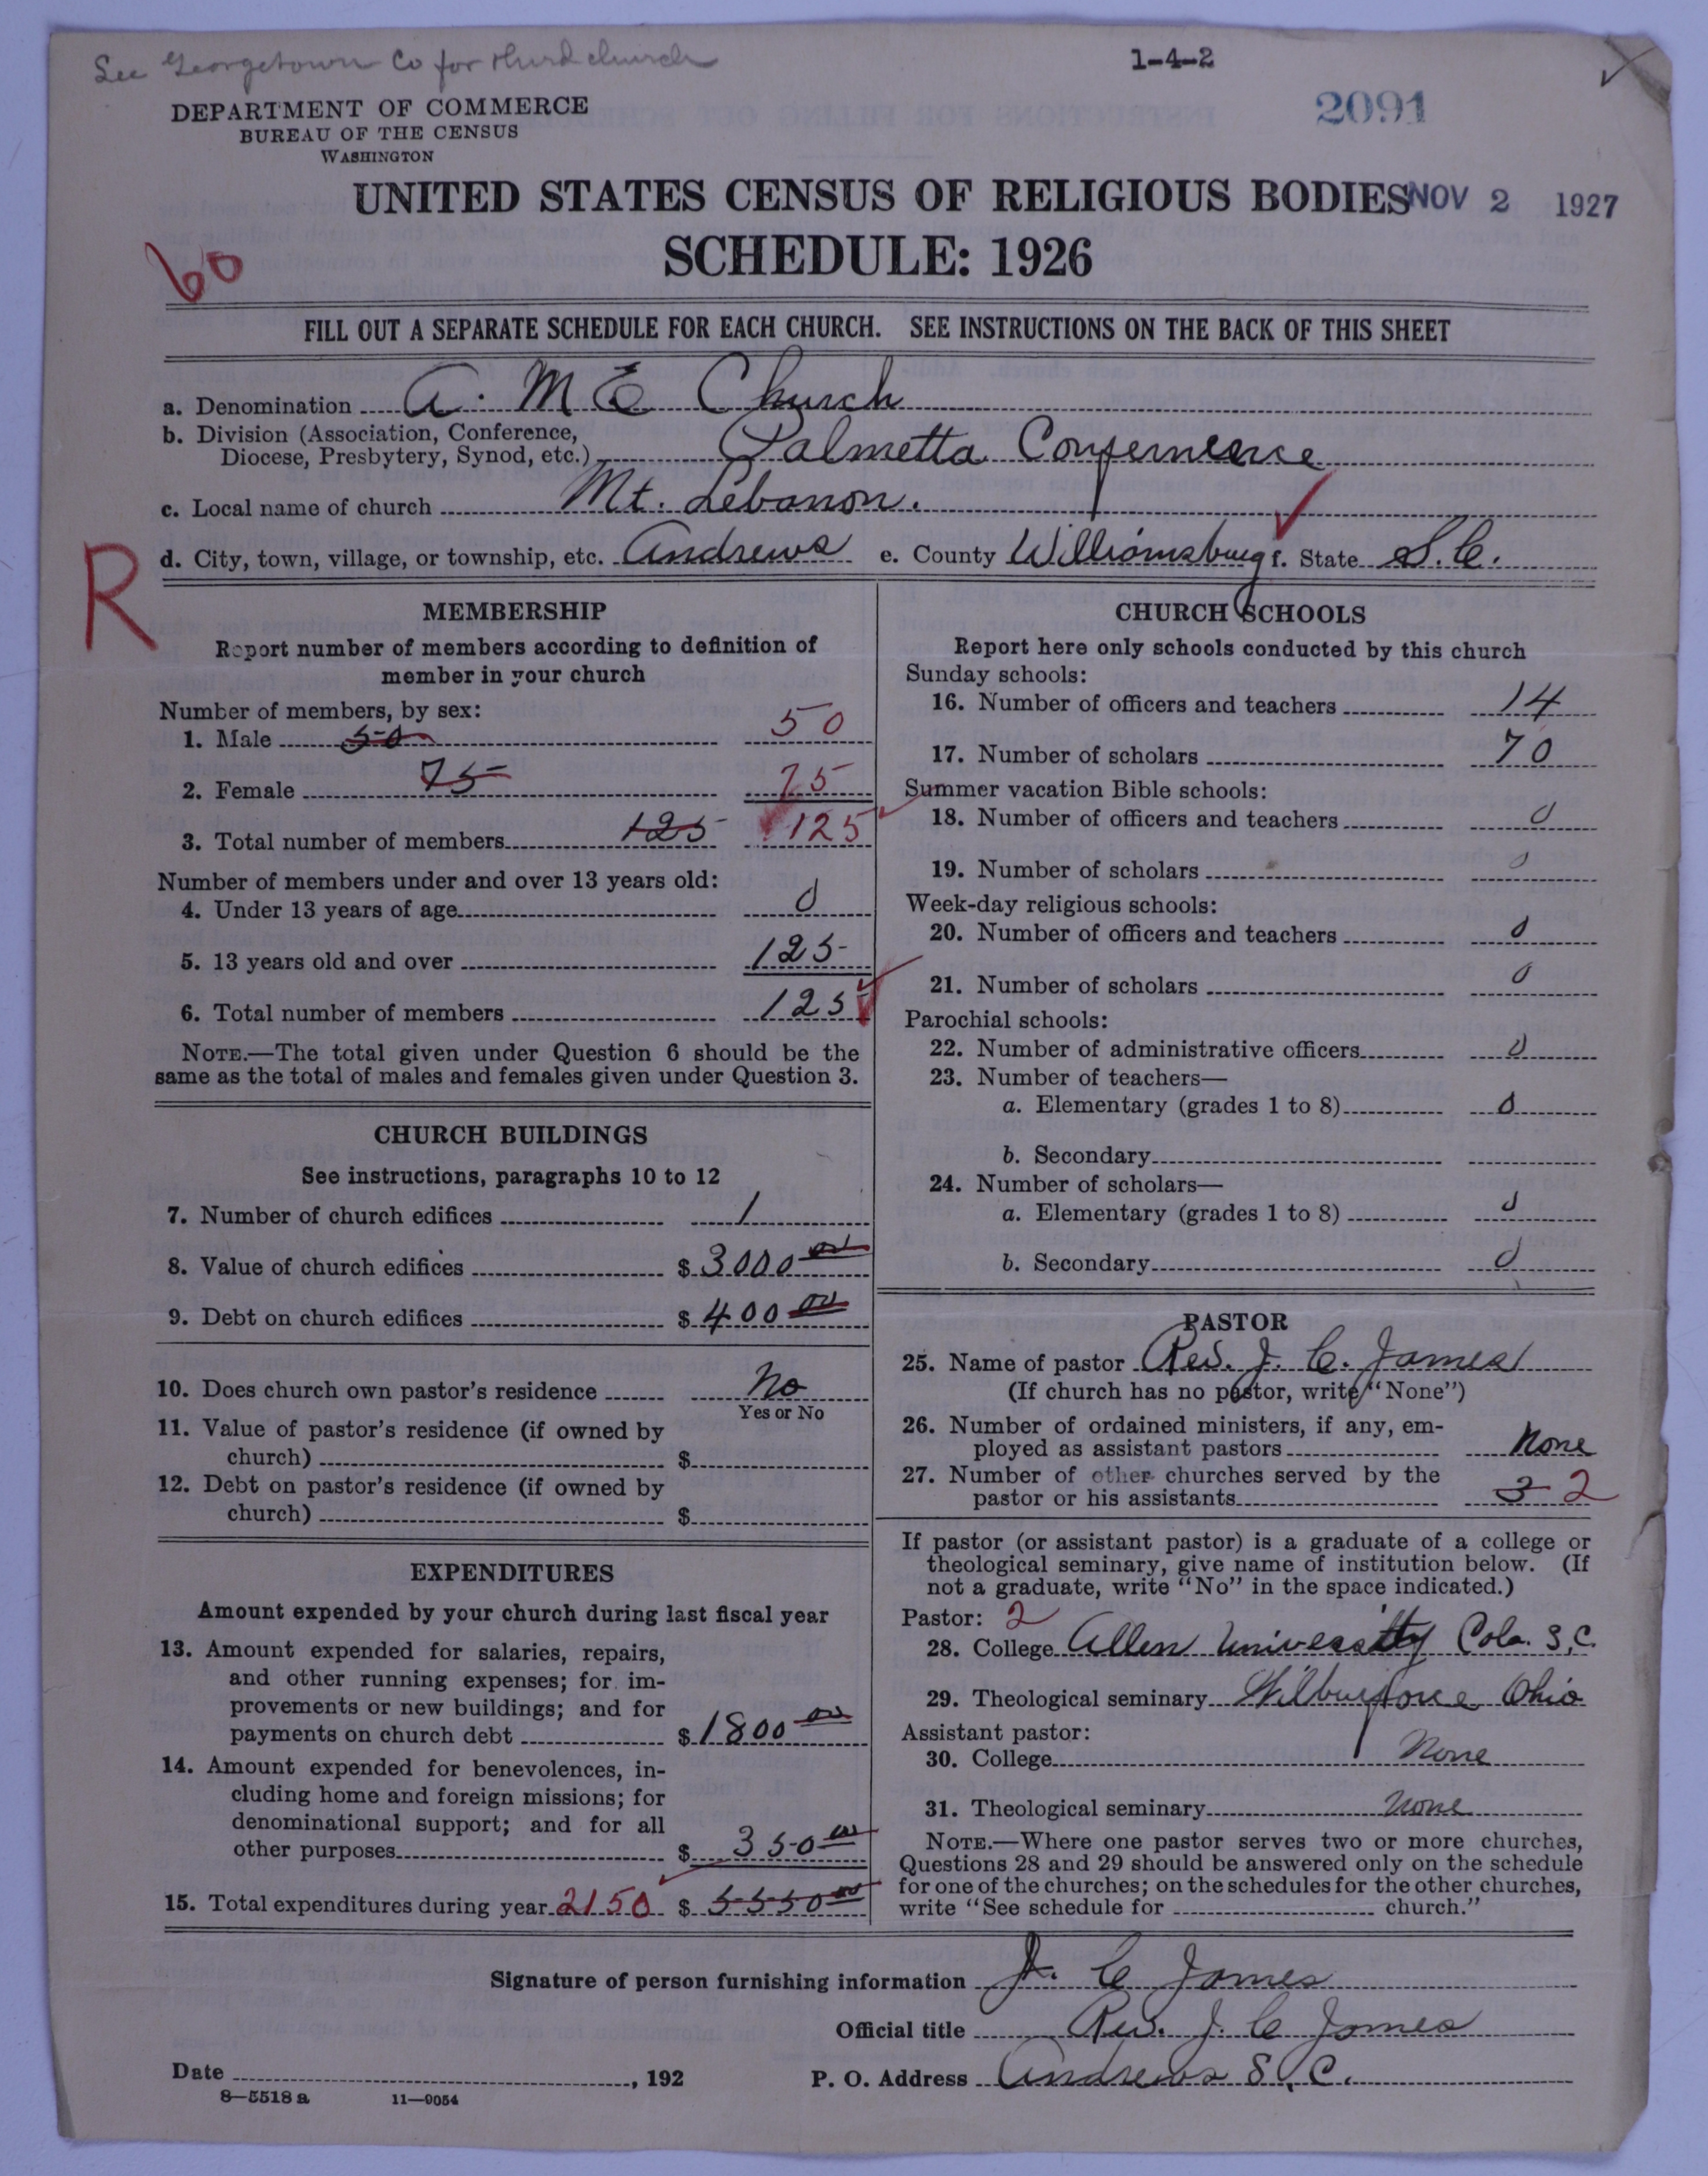 See Georgetown Co for third church
1-4-2
2091
DEPARTMENT OF COMMERCE
BUREAU OF THE CENSUS
WASHINGTON
UNITED STATES CENSUS OF RELIGIOUS BODIES
NOV 2 1927
SCHEDULE: 1926
60
FILL OUT A SEPARATE SCHEDULE FOR EACH CHURCH. SEE INSTRUCTIONS ON THE BACK OF THIS SHEET
a. Denomination A. M E Church
b. Division (Association, Conference,
Diocese, Presbytery, Synod, etc.) Palmetta Confernence
c. Local name of church Mt. Lebanon.
R
d. City, town, village, or township, etc. Andrews e. County Williamsburg f. State S.C.
MEMBERSHIP
Report number of members according to definition of
member in your church
Number of members, by sex:
1. Male 50 50
2. Female 75 75
3. Total number of members 125 125
Number of members under and over 13 years old:
4. Under 13 years of age 0
5. 13 years old and over 125
6. Total number of members 125
NOTE.—The total given under Question 6 should be the
same as the total of males and females given under Question 3.
CHURCH BUILDINGS
See instructions, paragraphs 10 to 12
7. Number of church edifices 1
8. Value of church edifices $3000 00
9. Debt on church edifices $400 00
10. Does church own pastor's residence No
Yes or No
11. Value of pastor's residence (if owned by
church) $
12. Debt on pastor's residence (if owned by
church) $
EXPENDITURES
Amount expended by your church during last fiscal year
13. Amount expended for salaries, repairs,
and other running expenses; for im-
provements or new buildings; and for
payments on church debt $1800 00
14. Amount expended for benevolences, in-
cluding home and foreign missions; for
denominational support; and for all
other purposes $ 350 00
15. Total expenditures during year 2150 $ 5550 00
CHURCH SCHOOLS
Report here only schools conducted by this church
Sunday schools:
16. Number of officers and teachers 14
17. Number of scholars 70
Summer vacation Bible schools:
18. Number of officers and teachers 0
19. Number of scholars 0
Week-day religious schools:
20. Number of officers and teachers 0
21. Number of scholars 0
Parochial schools:
22. Number of administrative officers 0
23. Number of teachers—
a. Elementary (grades 1 to 8) 0
b. Secondary
24. Number of scholars—
a. Elementary (grades 1 to 8) 0
b. Secondary 0
PASTOR
25. Name of pastor Rev. J. C. James
(If church has no pastor, write "None")
26. Number of ordained ministers, if any, em-
ployed as assistant pastors None
27. Number of other churches served by the
pastor or his assistants 3 2
If pastor (or assistant pastor) is a graduate of a college or
theological seminary, give name of institution below. (If
not a graduate, write "No" in the space indicated.)
Pastor: 2
28. College Allen University Cola. S.C.
29. Theological seminary Wilburforce Ohio
Assistant pastor:
30. College None
31. Theological seminary None
NOTE.—Where one pastor serves two or more churches,
Questions 28 and 29 should be answered only on the schedule
for one of the churches; on the schedules for the other churches,
write "See schedule for church."
Signature of person furnishing information J. C James
Official title Rev. J. C James
Date , 192
P. O. Address Andrews S.C.
8—5518 a 11—9054